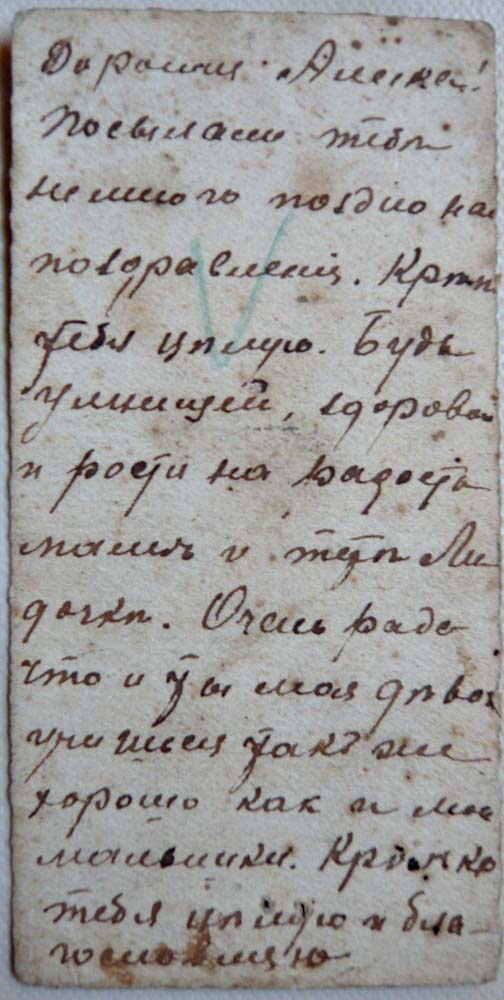 Дорогая Алечка!
Посылаю тебе
немного поздно на
поздравленiя. Крѣп
тебя цѣлую. Будь
умницей, здоровой
и рости на радость
мамѣ и тетѣ Ли
дочкѣ. Очень рада
что и ты моя дѣвоч
учишься такъ же
хорошо как и мои
мальчики. Крѣпко
тебя цѣлую и бла-
гословляю